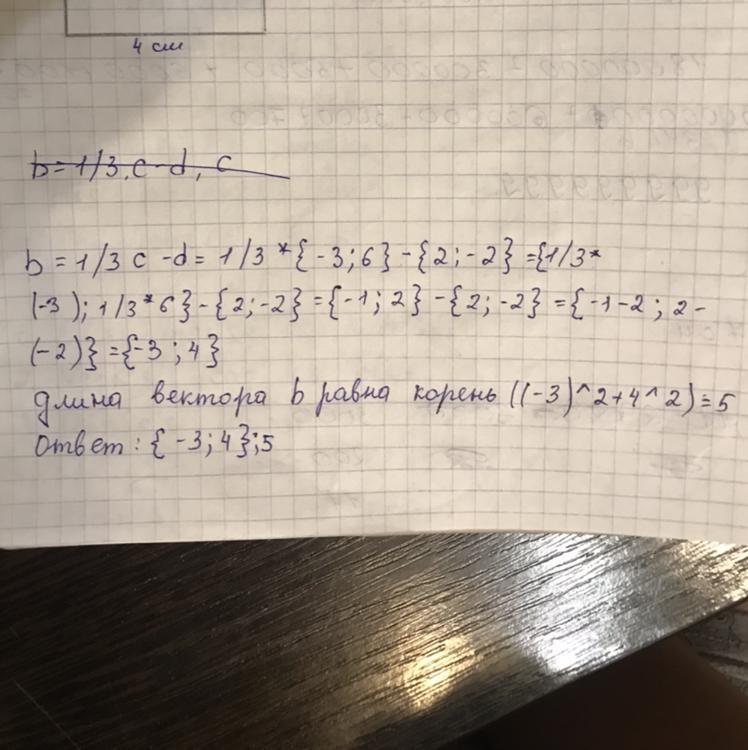 4 см
b = 1/3, c - d, c
b = 1/3 c - d = 1/3 * {-3; 6} - {2; -2} = {1/3*
(-3); 1/3*6} - {2; -2} = {-1; 2} - {2; -2} = {-1-2; 2-
(-2)} = {-3; 4}
длина вектора b равна корень ((-3)^2+4^2) = 5
Ответ: {-3; 4}; 5